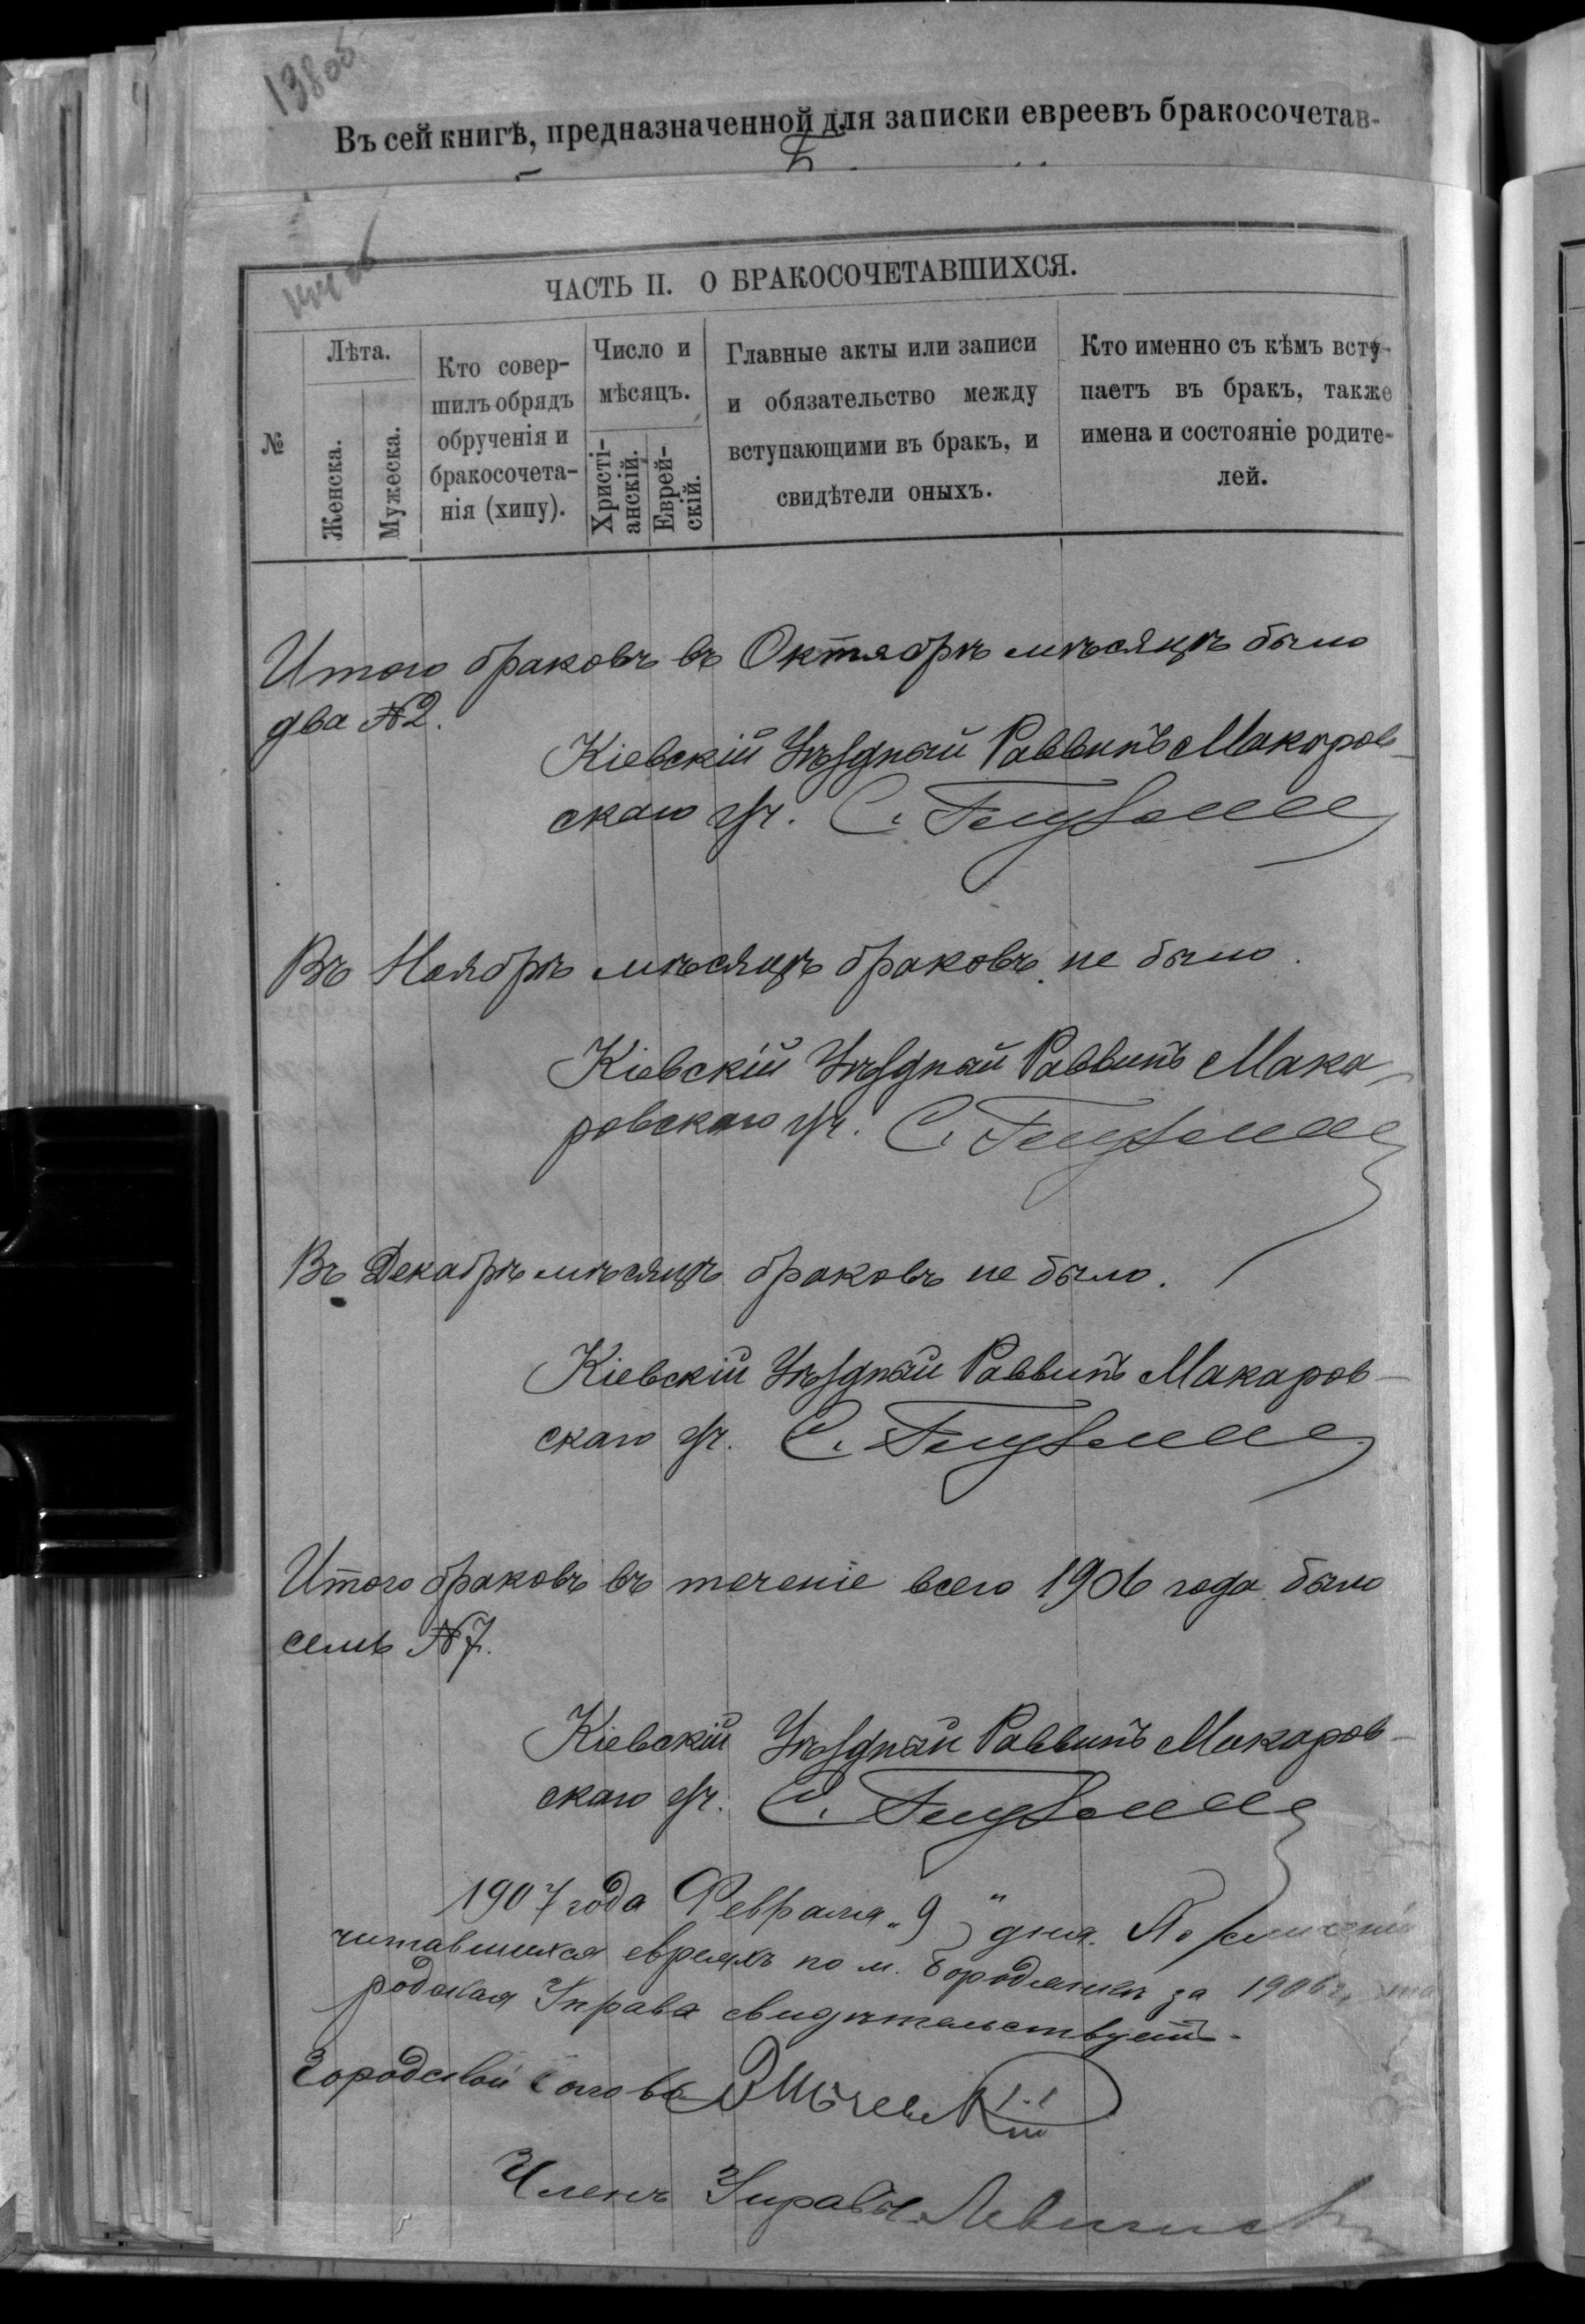 138об
Въ сей книгѣ, предназначенной для записки евреевъ бракосочетав-
ЧАСТЬ II. О БРАКОСОЧЕТАВШИХСЯ.
№
Лѣта.
Женска.
Мужеска.
Кто совер-
шилъ обрядъ
обрученія и
бракосочета-
нія (хипу).
Число и
мѣсяцъ.
Христі-
анскій.
Еврей-
скій.
Главные акты или записи
и обязательство между
вступающими въ бракъ, и
свидѣтели оныхъ.
Кто именно съ кѣмъ всту-
паетъ въ бракъ, также
имена и состояніе родите-
лей.
Итого браковъ въ Октябрѣ мѣсяцѣ было
два №2.
Кіевскій Уѣздный Раввинъ Макаров-
скаго уч. С.
Въ Ноябрѣ мѣсяцѣ браковъ не было.
Кіевскій Уѣздный Раввинъ Мака-
ровскаго уч. С.
Въ Декабрѣ мѣсяцѣ браковъ не было.
Кіевскій Уѣздный Раввинъ Макаров-
скаго уч. С.
Итого браковъ въ теченіе всего 1906 года было
семь №7.
Кіевскій Уѣздный Раввинъ Макаров-
скаго уч. С.
1907 года Февраля „9" дня.
читавшихся евреяхъ по м. Бородянкѣ за 1906 г.
родская Управа свидѣтельствуетъ.
Городской Голова
Членъ Управы